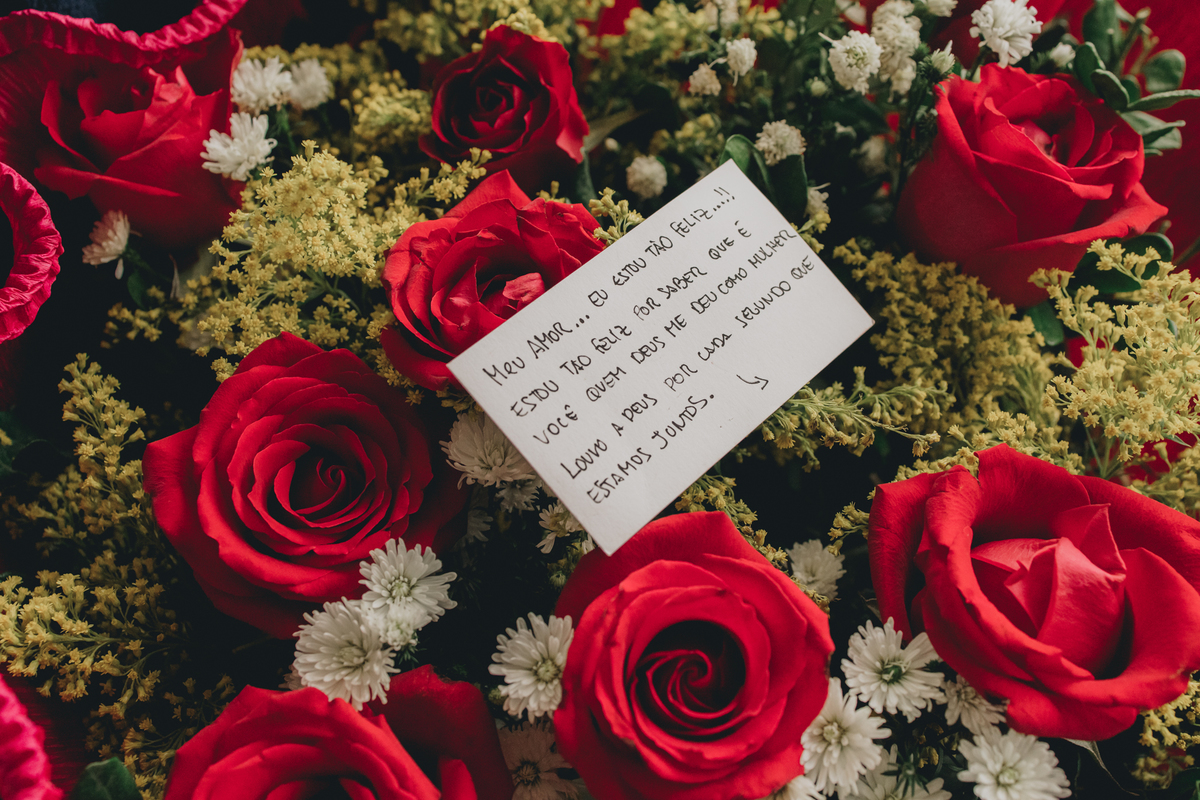 MEU AMOR... EU ESTOU TÃO FELIZ...!!
ESTOU TÃO FELIZ POR SABER QUE É
VOCÊ QUEM DEUS ME DEU COMO MULHER
LOUVO A DEUS POR CADA SEGUNDO QUE
ESTAMOS JUNTOS.